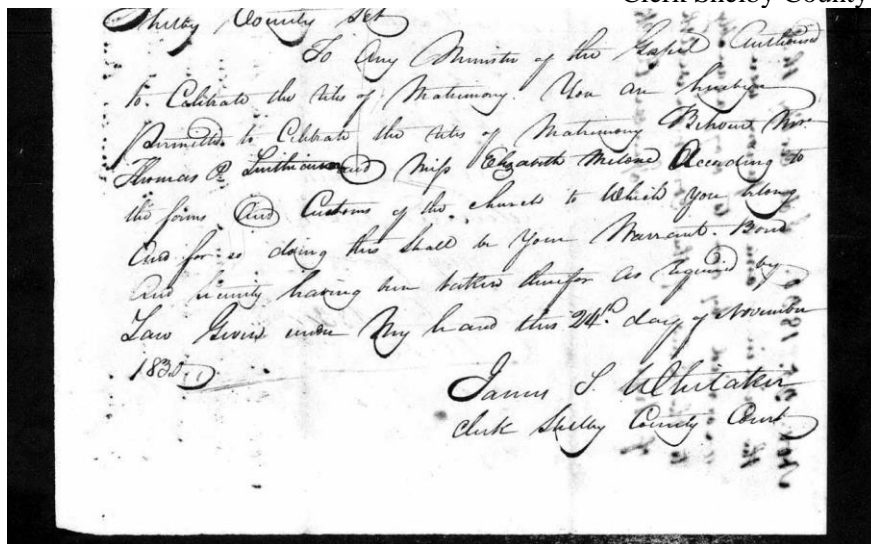 Clerk Shelby County
Shelby County Set
To Any Minister of the Gospel Authorised
to Celibrate the rites of Matrimony. You are hereby
Permitted to Celibrate the rites of Matrimony Betwen Mr.
Thomas P. and Miss Elizabeth According to
the forms And Customs of the church to Which you belong
And for so doing this shall be Your Warrant. Bond
And security having been taken therefor as required by
Law Given under My hand this 24th. day of November
James S. Whitaker
Clerk Shelby County Court